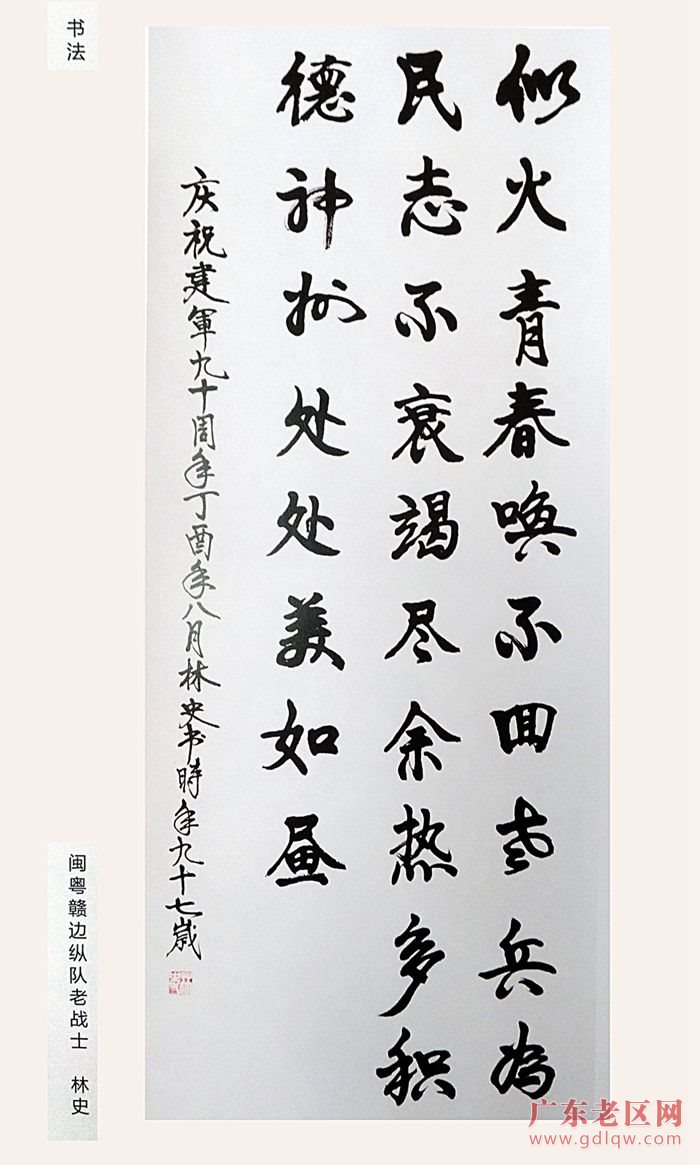 书法
似火青春唤不回老兵為
民志不衰竭尽余热多积
德神州处处美如昼
庆祝建軍九十周年丁酉年八月林史书時年九十七歲
闽粤赣边纵队老战士 林史
广东老区网
www.gdlqw.com